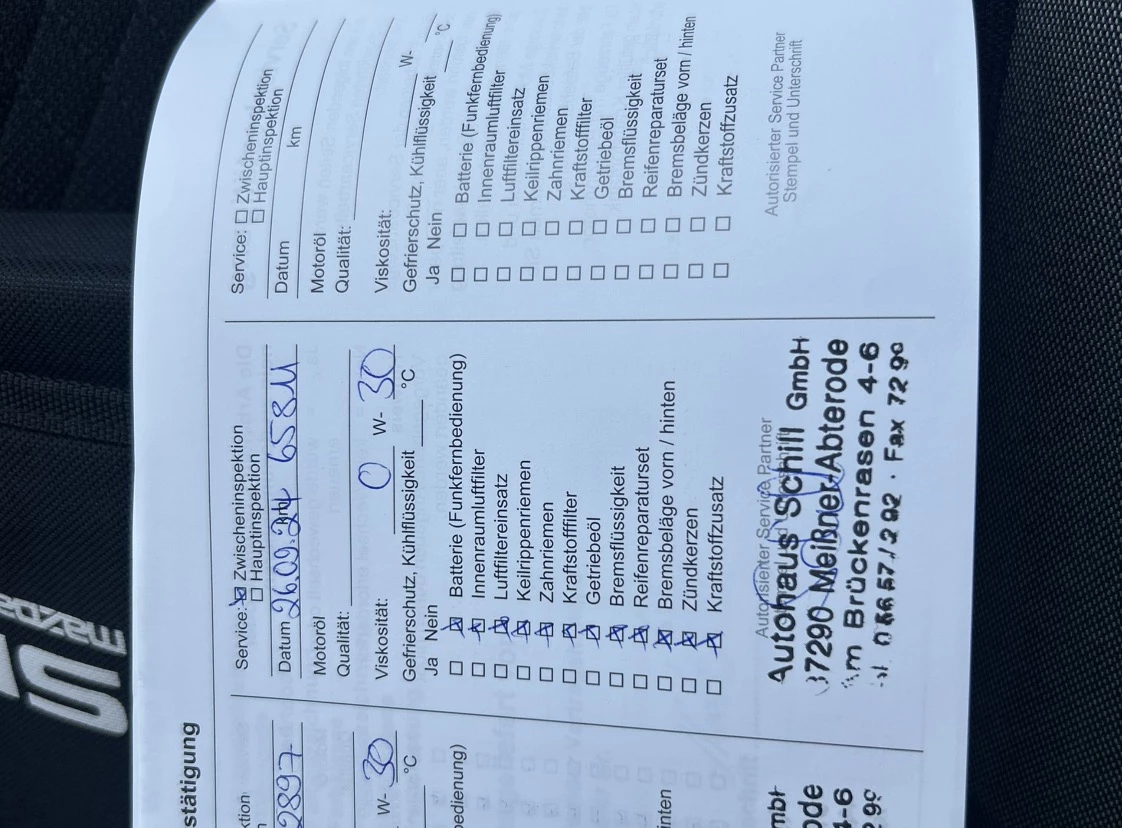 stätigung
ktion
2897
W-30
°C
bedienung)
inten
mbH
ode
4-6
Service: ☒ Zwischeninspektion
☐ Hauptinspektion
Datum 26.09.24 65811
Motoröl
Qualität:
Viskosität: 0 W-30
Gefrierschutz, Kühlflüssigkeit °C
Ja Nein
☐ ☒ Batterie (Funkfernbedienung)
☐ ☒ Innenraumluftfilter
☐ ☒ Luftfiltereinsatz
☐ ☒ Keilrippenriemen
☐ ☒ Zahnriemen
☐ ☒ Kraftstofffilter
☐ ☒ Getriebeöl
☐ ☒ Bremsflüssigkeit
☐ ☒ Reifenreparaturset
☐ ☒ Bremsbeläge vorn / hinten
☐ ☒ Zündkerzen
☐ ☒ Kraftstoffzusatz
Autorisierter Service Partner
Autohaus Schill GmbH
37290 Meißner-Abterode
m Brückenrasen 4-6
05657/292 · Fax 7290
Service: ☐ Zwischeninspektion
☐ Hauptinspektion
Datum km
Motoröl
Qualität:
Viskosität: W-
Gefrierschutz, Kühlflüssigkeit °C
Ja Nein
☐ ☐ Batterie (Funkfernbedienung)
☐ ☐ Innenraumluftfilter
☐ ☐ Luftfiltereinsatz
☐ ☐ Keilrippenriemen
☐ ☐ Zahnriemen
☐ ☐ Kraftstofffilter
☐ ☐ Getriebeöl
☐ ☐ Bremsflüssigkeit
☐ ☐ Reifenreparaturset
☐ ☐ Bremsbeläge vorn / hinten
☐ ☐ Zündkerzen
☐ ☐ Kraftstoffzusatz
Autorisierter Service Partner
Stempel und Unterschrift
mazda